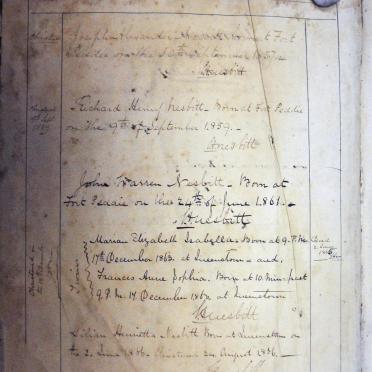 Joseph Alexander Nesbitt Born at Fort
Peddie on the September 1857
Nesbitt
Richard Henry Nesbitt - Born at Fort Peddie
on the 9th of September 1859. -
Nesbitt
John Warren Nesbitt - Born at
Fort Peddie on the 24th of June 1861. -
Nesbitt
Twins
Maria Elizabeth Isabella. Born at 9. P.M.
17th December 1863. at Queenstown - and.
Frances Anne Sophia. Born at 10 Min. past
9 P.M. 17. December 1863, at Queenstown
Nesbitt
Lilian Henrietta Nesbitt Born at Queenstown on
the 2. June 1866. Christened 24 August 1866. -